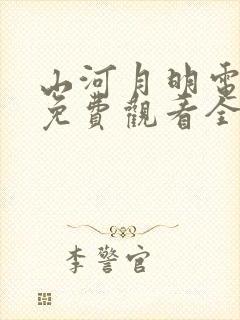 山河月明電
免費觀看全
李警官